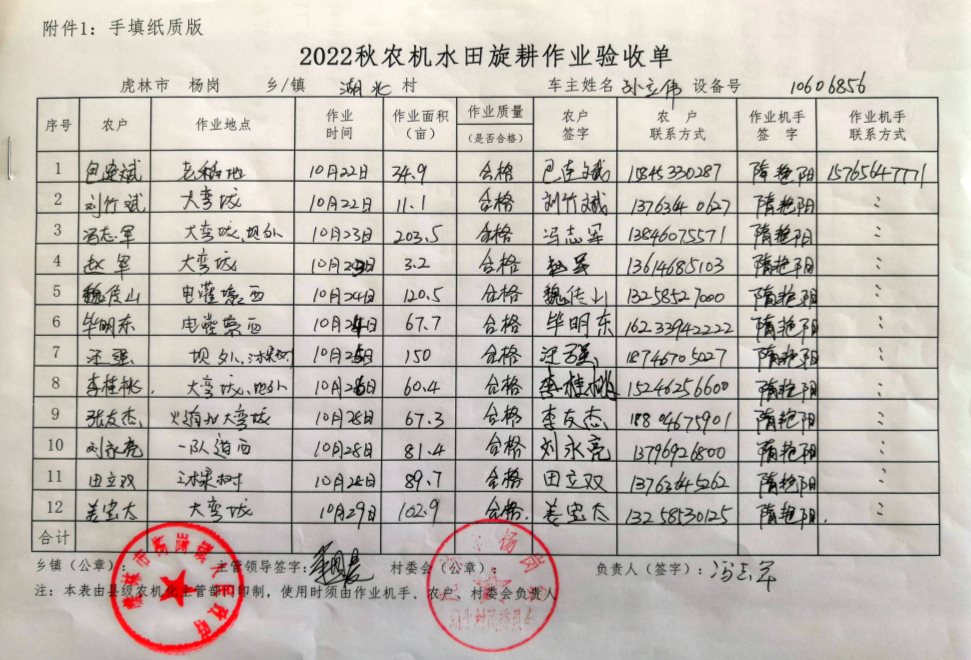 附件1：手填纸质版
2022秋农机水田旋耕作业验收单
虎林市 杨岗 乡/镇 湖北 村 车主姓名 孙立伟 设备号 10606856
序号 农户 作业地点 作业时间 作业面积（亩） 作业质量（是否合格） 农户签字 农户联系方式 作业机手签字 作业机手联系方式
1 包连斌 老稻地 10月22日 34.9 合格 包连斌 15845330287 隋艳阳 15765647771
2 刘竹斌 大弯坺 10月22日 11.1 合格 刘竹斌 1376364 0627 隋艳阳 〃
3 冯志军 大弯坺、坝外 10月23日 203.5 合格 冯志军 13846075571 隋艳阳 〃
4 赵军 大弯坺 10月23日 3.2 合格 赵军 13614685103 隋艳阳 〃
5 魏传山 电灌 西 10月24日 120.5 合格 魏传山 13258527000 隋艳阳 〃
6 毕明东 电灌 西 10月24日 67.7 合格 毕明东 16233942222 隋艳阳 〃
7 汪强 坝外、 10月25日 150 合格 汪强 18746705027 隋艳阳 〃
8 李桂桃 大弯坺、地外 10月26日 60.4 合格 李桂桃 15246256600 隋艳阳 〃
9 张友杰 大弯坺 10月28日 67.3 合格 李友杰 18804675901 隋艳阳 〃
10 刘永亮 一队道西 10月28日 81.4 合格 刘永亮 13796926800 隋艳阳 〃
11 田立双 三棵树 10月28日 89.7 合格 田立双 13763645262 隋艳阳 〃
12 姜宝太 大弯坺 10月29日 102.9 合格 姜宝太 13258530125 隋艳阳 〃
合计
乡镇（公章）： 主管领导签字： 村委会（公章）： 负责人（签字）：冯志军
注：本表由县级农机化主管部门印制，使用时须由作业机手、农户、村委会负责人
虎林市杨岗镇人民政府